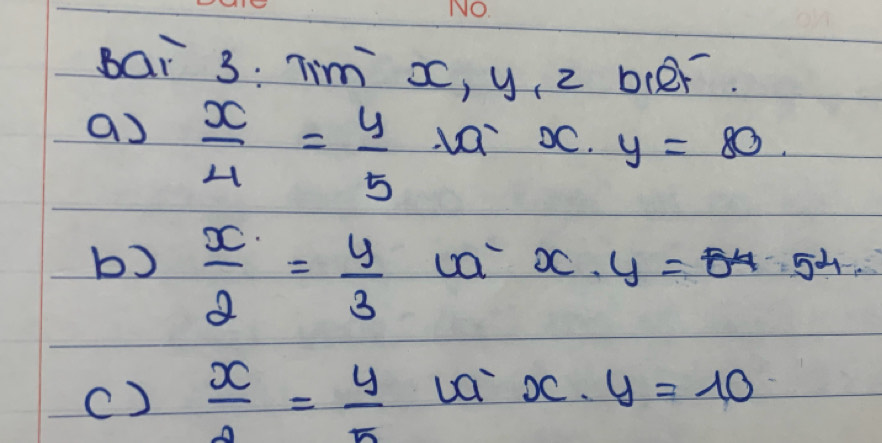 Date No.
Bài 3: Tìm x, y, z biết.
a) x/4 = y/5 và x . y = 80.
b) x/2 = y/3 và x . y = 54.
c) x/2 = y/5 và x . y = 10